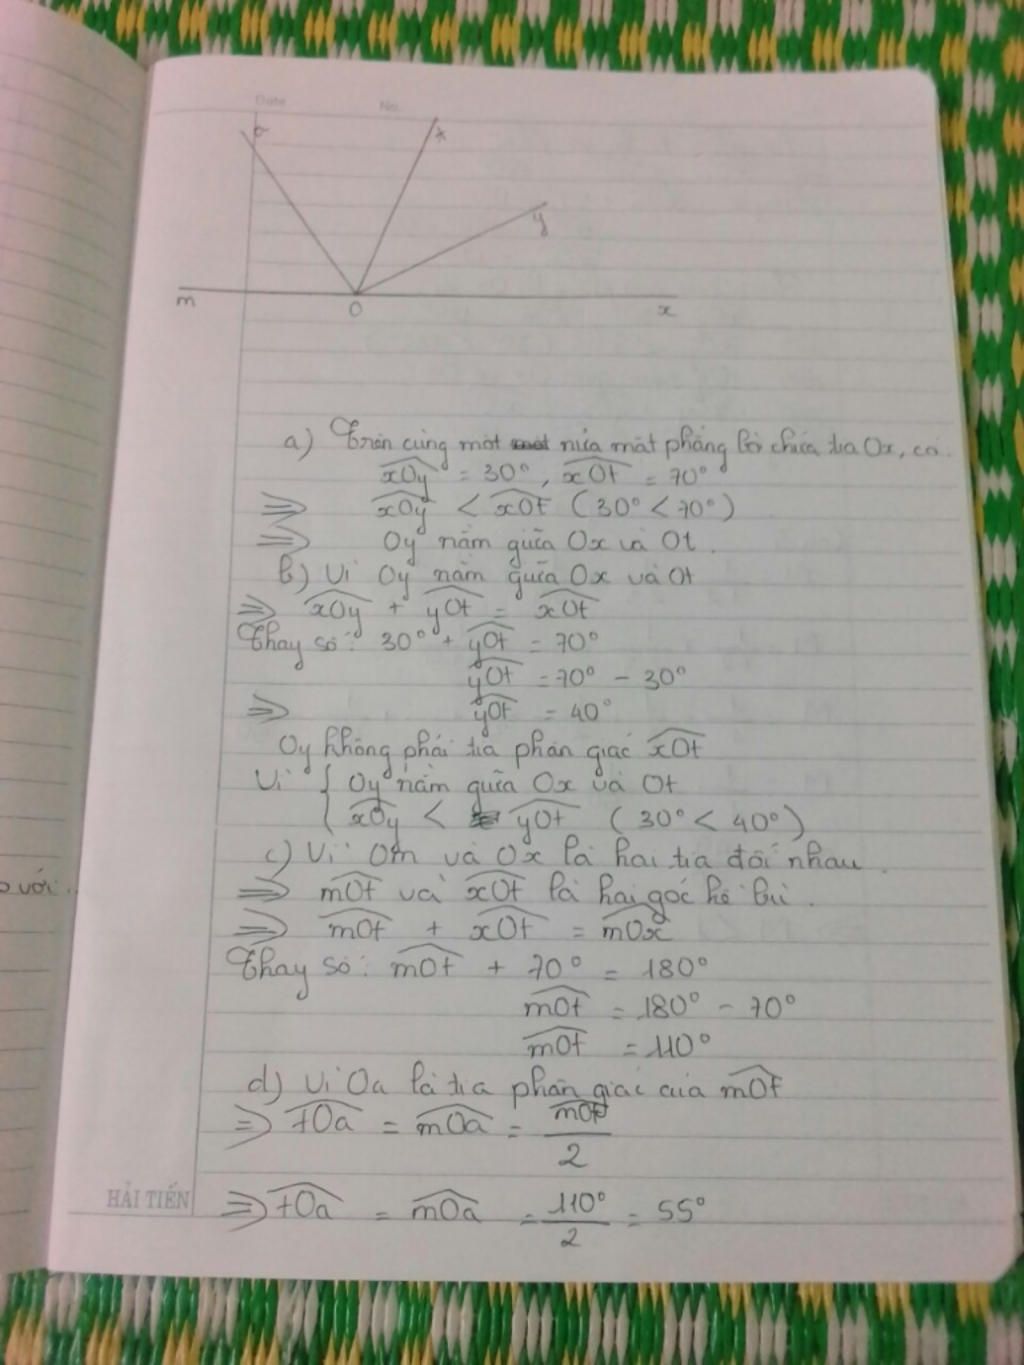 Date No.
a t
y
m O x
a) Trên cùng một nửa mặt phẳng bờ chứa tia Ox, có
xOy = 30°, xOt = 70°
=> xOy < xOt (30° < 70°)
=> Oy nằm giữa Ox và Ot.
b) Vì Oy nằm giữa Ox và Ot
=> xOy + yOt = xOt
Thay số: 30° + yOt = 70°
yOt = 70° - 30°
=> yOt = 40°
Oy không phải tia phân giác xOt
Vì { Oy nằm giữa Ox và Ot
xOy < yOt (30° < 40°)
c) Vì Om và Ox là hai tia đối nhau.
ο với.
=> mOt và xOt là hai góc kề bù.
=> mOt + xOt = mOx
Thay số: mOt + 70° = 180°
mOt = 180° - 70°
mOt = 110°
d) Vì Oa là tia phân giác của mOt
=> tOa = mOa = mOt/2
HẢI TIẾN
=> tOa = mOa = 110°/2 = 55°